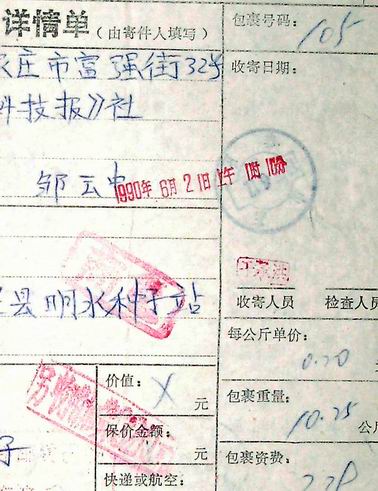 详情单(由寄件人填写)
包裹号码:
105
家庄市富强街32号
收寄日期:
科技报》社
邹云中
1990年6月21日上午11时10分
收寄人员 检查人员
县明水种子站
每公斤单价:
0.20 元
价值:
X 元
包裹重量:
10.25 公
保价金额:
元
子
包裹资费:
快递或航空: